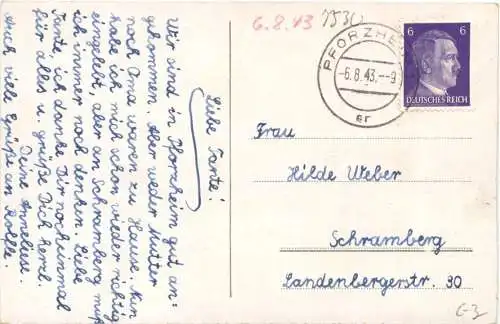 6.8.43
7530
PFORZHE
-6.8.43.--9
er
6 6
DEUTSCHES REICH
Liebe Tante!
Wir sind in Pforzheim gut an-
gekommen. Aber weder Mutter
noch Oma waren zu Hause. Nun
habe ich mich schon wieder richtig
eingelebt, aber an Schramberg muß
ich immer noch denken. Liebe
Tante, ich danke Dir noch einmal
für alles u. grüße Dich herzl.
Deine Annelies.
Auch viele Grüße an
Frau
Hilde Weber
Schramberg
Landenbergerstr. 30